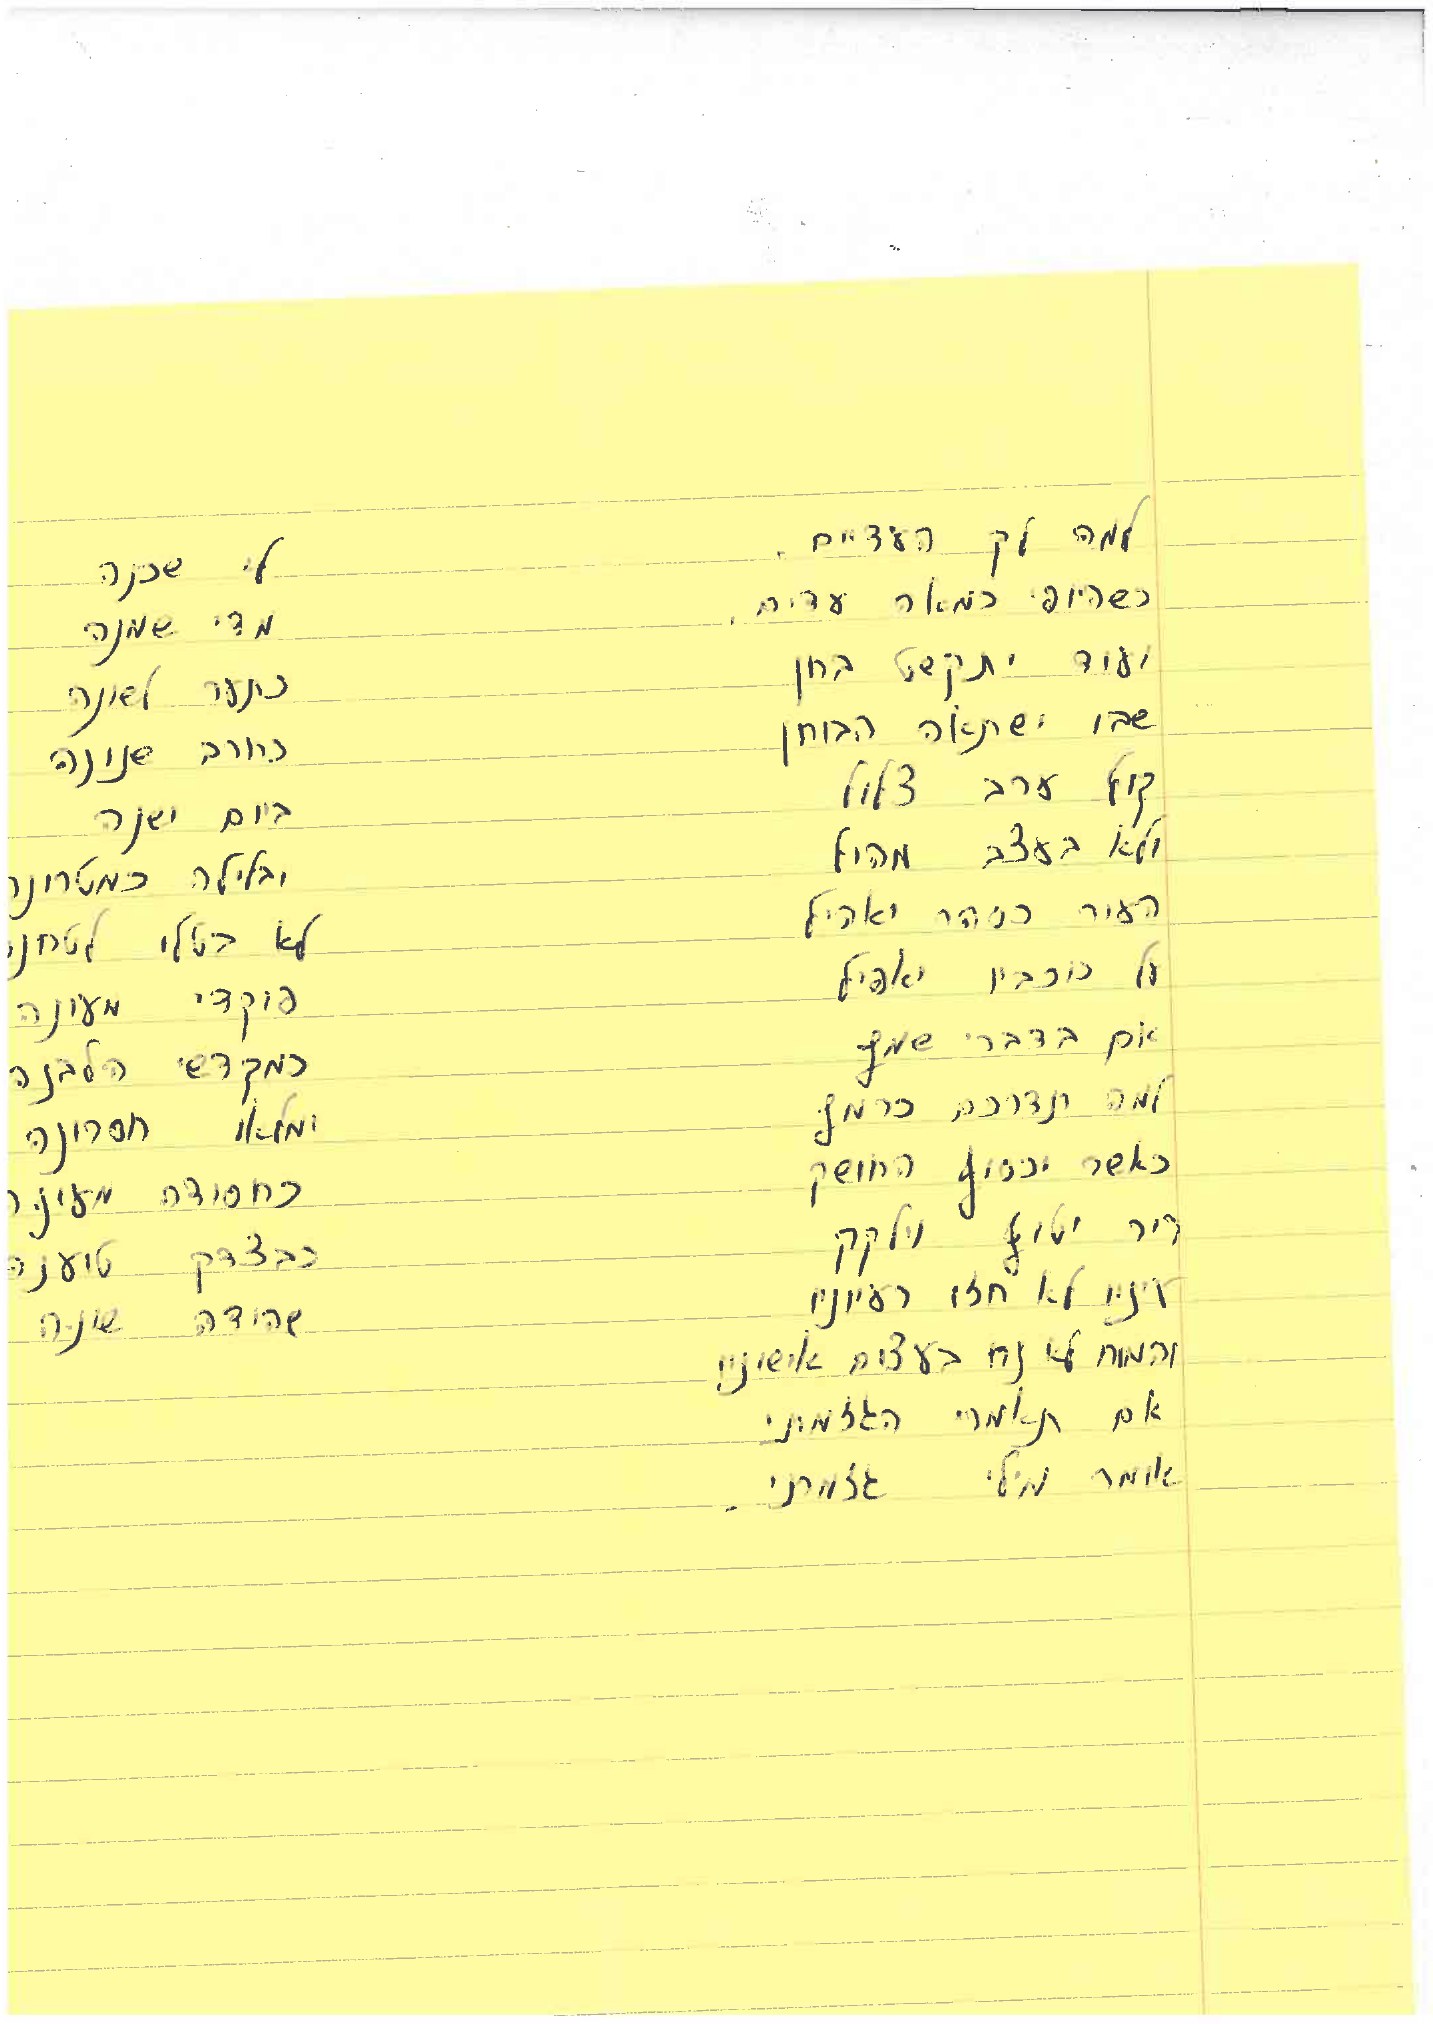 למה לך העדיים.
כשהיופי כמאה עדים.
ועוד יתקשט בחן
שבו ישתאה הבוחן
קול ערב צלול
ולא בעצב מהול
העיר כזוהר יאהיל
על כוכביו יאפיל
אם בדברי שמץ
למה תדרכם כרמץ
כאשר יכסוף החושק
ריר יטוף וילקק
עיניו לא חזו רעיוניו
והמוח לא נח בעצום אישוניו
אם תאמרי הגזמתי
אומר מילי גזמתי.
לי שכנה
מדי שמנה
כתער לשונה
כחרב שנונה
ביום ישנה
ובלילה כמטרונה
לא בטלו לטחנה
פוקדי מעונה
כמקדשי הלבנה
ומלאו חסרונה
כחסודה מעינה
כבצדק טוענה
שהודה שונה